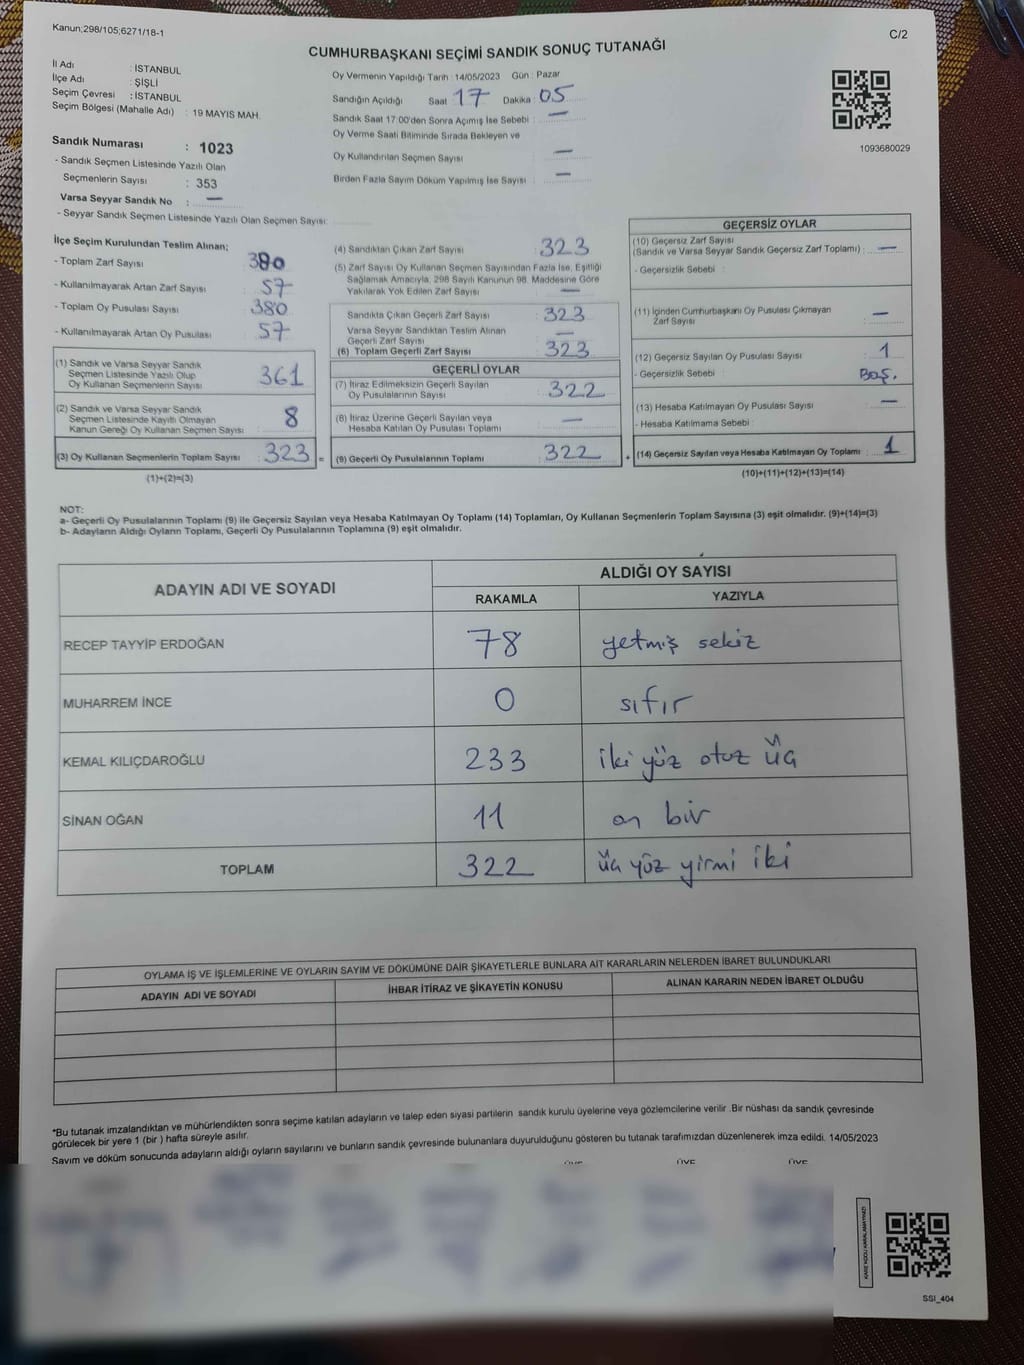 Kanun;298/105;6271/18-1
C/2
CUMHURBAŞKANI SEÇİMİ SANDIK SONUÇ TUTANAĞI
İl Adı : İSTANBUL
İlçe Adı : ŞİŞLİ
Seçim Çevresi : İSTANBUL
Seçim Bölgesi (Mahalle Adı) : 19 MAYIS MAH.
Sandık Numarası : 1023
- Sandık Seçmen Listesinde Yazılı Olan
Seçmenlerin Sayısı : 353
Varsa Seyyar Sandık No : —
- Seyyar Sandık Seçmen Listesinde Yazılı Olan Seçmen Sayısı:
Oy Vermenin Yapıldığı Tarih : 14/05/2023 Gün : Pazar
Sandığın Açıldığı Saat 17 Dakika : 05
Sandık Saat 17:00'den Sonra Açımış İse Sebebi : —
Oy Verme Saati Bitiminde Sırada Bekleyen ve
Oy Kullandırılan Seçmen Sayısı : —
Birden Fazla Sayım Döküm Yapılmış İse Sayısı : —
1093680029
İlçe Seçim Kurulundan Teslim Alınan;
- Toplam Zarf Sayısı : 380
- Kullanılmayarak Artan Zarf Sayısı : 57
- Toplam Oy Pusulası Sayısı : 380
- Kullanılmayarak Artan Oy Pusulası : 57
(1) Sandık ve Varsa Seyyar Sandık
Seçmen Listesinde Yazılı Olup
Oy Kullanan Seçmenlerin Sayısı : 361
(2) Sandık ve Varsa Seyyar Sandık
Seçmen Listesinde Kayıtlı Olmayan
Kanun Gereği Oy Kullanan Seçmen Sayısı : 8
(3) Oy Kullanan Seçmenlerin Toplam Sayısı : 323 =
(1)+(2)=(3)
(4) Sandıktan Çıkan Zarf Sayısı : 323
(5) Zarf Sayısı Oy Kullanan Seçmen Sayısından Fazla İse, Eşitliği
Sağlamak Amacıyla; 298 Sayılı Kanunun 98. Maddesine Göre
Yakılarak Yok Edilen Zarf Sayısı : —
Sandıkta Çıkan Geçerli Zarf Sayısı : 323
Varsa Seyyar Sandıktan Teslim Alınan
Geçerli Zarf Sayısı : —
(6) Toplam Geçerli Zarf Sayısı : 323
GEÇERLİ OYLAR
(7) İtiraz Edilmeksizin Geçerli Sayılan
Oy Pusulalarının Sayısı : 322
(8) İtiraz Üzerine Geçerli Sayılan veya
Hesaba Katılan Oy Pusulası Toplamı : —
(9) Geçerli Oy Pusulalarının Toplamı : 322 +
GEÇERSİZ OYLAR
(10) Geçersiz Zarf Sayısı
(Sandık ve Varsa Seyyar Sandık Geçersiz Zarf Toplamı) : —
- Geçersizlik Sebebi :
(11) İçinden Cumhurbaşkanı Oy Pusulası Çıkmayan
Zarf Sayısı : —
(12) Geçersiz Sayılan Oy Pusulası Sayısı : 1
- Geçersizlik Sebebi : BOŞ.
(13) Hesaba Katılmayan Oy Pusulası Sayısı : —
- Hesaba Katılmama Sebebi :
(14) Geçersiz Sayılan veya Hesaba Katılmayan Oy Toplamı : 1
(10)+(11)+(12)+(13)=(14)
NOT:
a- Geçerli Oy Pusulalarının Toplamı (9) ile Geçersiz Sayılan veya Hesaba Katılmayan Oy Toplamı (14) Toplamları, Oy Kullanan Seçmenlerin Toplam Sayısına (3) eşit olmalıdır. (9)+(14)=(3)
b- Adayların Aldığı Oyların Toplamı, Geçerli Oy Pusulalarının Toplamına (9) eşit olmalıdır.
ADAYIN ADI VE SOYADI
ALDIĞI OY SAYISI
RAKAMLA YAZIYLA
RECEP TAYYİP ERDOĞAN 78 yetmiş sekiz
MUHARREM İNCE 0 sıfır
KEMAL KILIÇDAROĞLU 233 iki yüz otuz üç
SİNAN OĞAN 11 on bir
TOPLAM 322 üç yüz yirmi iki
OYLAMA İŞ VE İŞLEMLERİNE VE OYLARIN SAYIM VE DÖKÜMÜNE DAİR ŞİKAYETLERLE BUNLARA AİT KARARLARIN NELERDEN İBARET BULUNDUKLARI
ADAYIN ADI VE SOYADI İHBAR İTİRAZ VE ŞİKAYETİN KONUSU ALINAN KARARIN NEDEN İBARET OLDUĞU
*Bu tutanak imzalandıktan ve mühürlendikten sonra seçime katılan adayların ve talep eden siyasi partilerin sandık kurulu üyelerine veya gözlemcilerine verilir .Bir nüshası da sandık çevresinde
görülecek bir yere 1 (bir ) hafta süreyle asılır.
Sayım ve döküm sonucunda adayların aldığı oyların sayılarını ve bunların sandık çevresinde bulunanlara duyurulduğunu gösteren bu tutanak tarafımızdan düzenlenerek imza edildi. 14/05/2023
ÜYE ÜYE ÜYE
KARE KODU KARALAMAYINIZ!
SSI_404